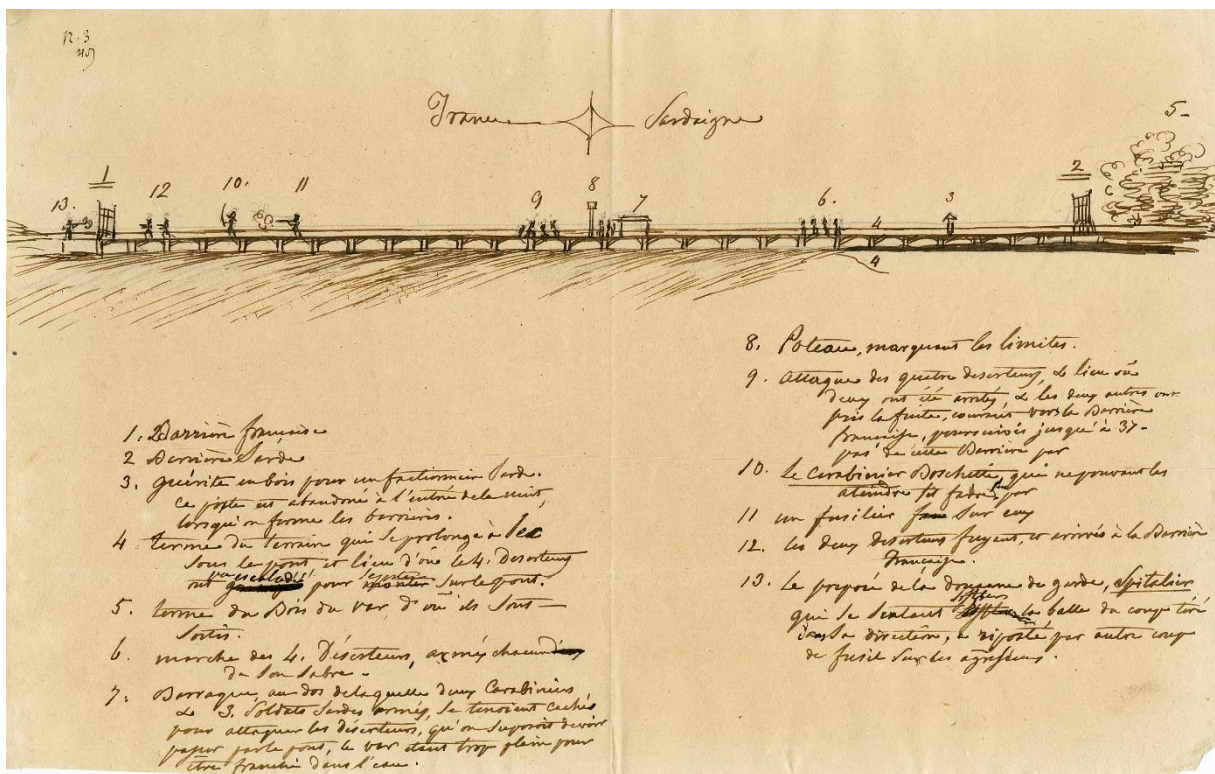 N. 3
France Sardaigne
5-
1 2
13. 12 10. 11 9 8 7 6. 4 3
4
1. Barrière française
2 Barrière Sarde
3. guérite en bois pour un factionnaire Sarde.
ce poste est abandonné à l'entrée de la nuit,
lorsqu'on ferme les barrières.
4 terme du terrain qui se prolonge à sec
sous le pont et lieu d'où les 4. Deserteurs
ont escaladé pour sur le pont.
5. terme du Bois du var, d'où ils sont
sortis.
6. marche des 4. Déserteurs, armés chacun
de son sabre.
7. Barraque, au dos de laquelle deux Carabiniers
& 3. Soldats Sardes armés, se tenoient cachés
pour attaquer les déserteurs, qu'on suposoit devoir
passer par le pont, le var étant trop plein pour
être franchi dans l'eau.
8. Poteau, marquant les limites.
9. attaque des quatre deserteurs, & lieu où
deux ont été arrêtés, & les deux autres ont
pris la fuite, courant vers la Barrière
française, poursuivis jusqu'à 37-
pas de cette Barrière par
10. Le Carabinier Boschetti, qui ne pouvant les
ateindre fit par
11 un fusilier sur eux
12. les deux Deserteurs fuyant, et arrivés à la Barrière
française.
13. Le préposé de la Douane de garde, Spitalier
qui se sentant siffler la balle du coup tiré
dans sa direction, a riposté par autre coup
de fusil sur les agresseurs.